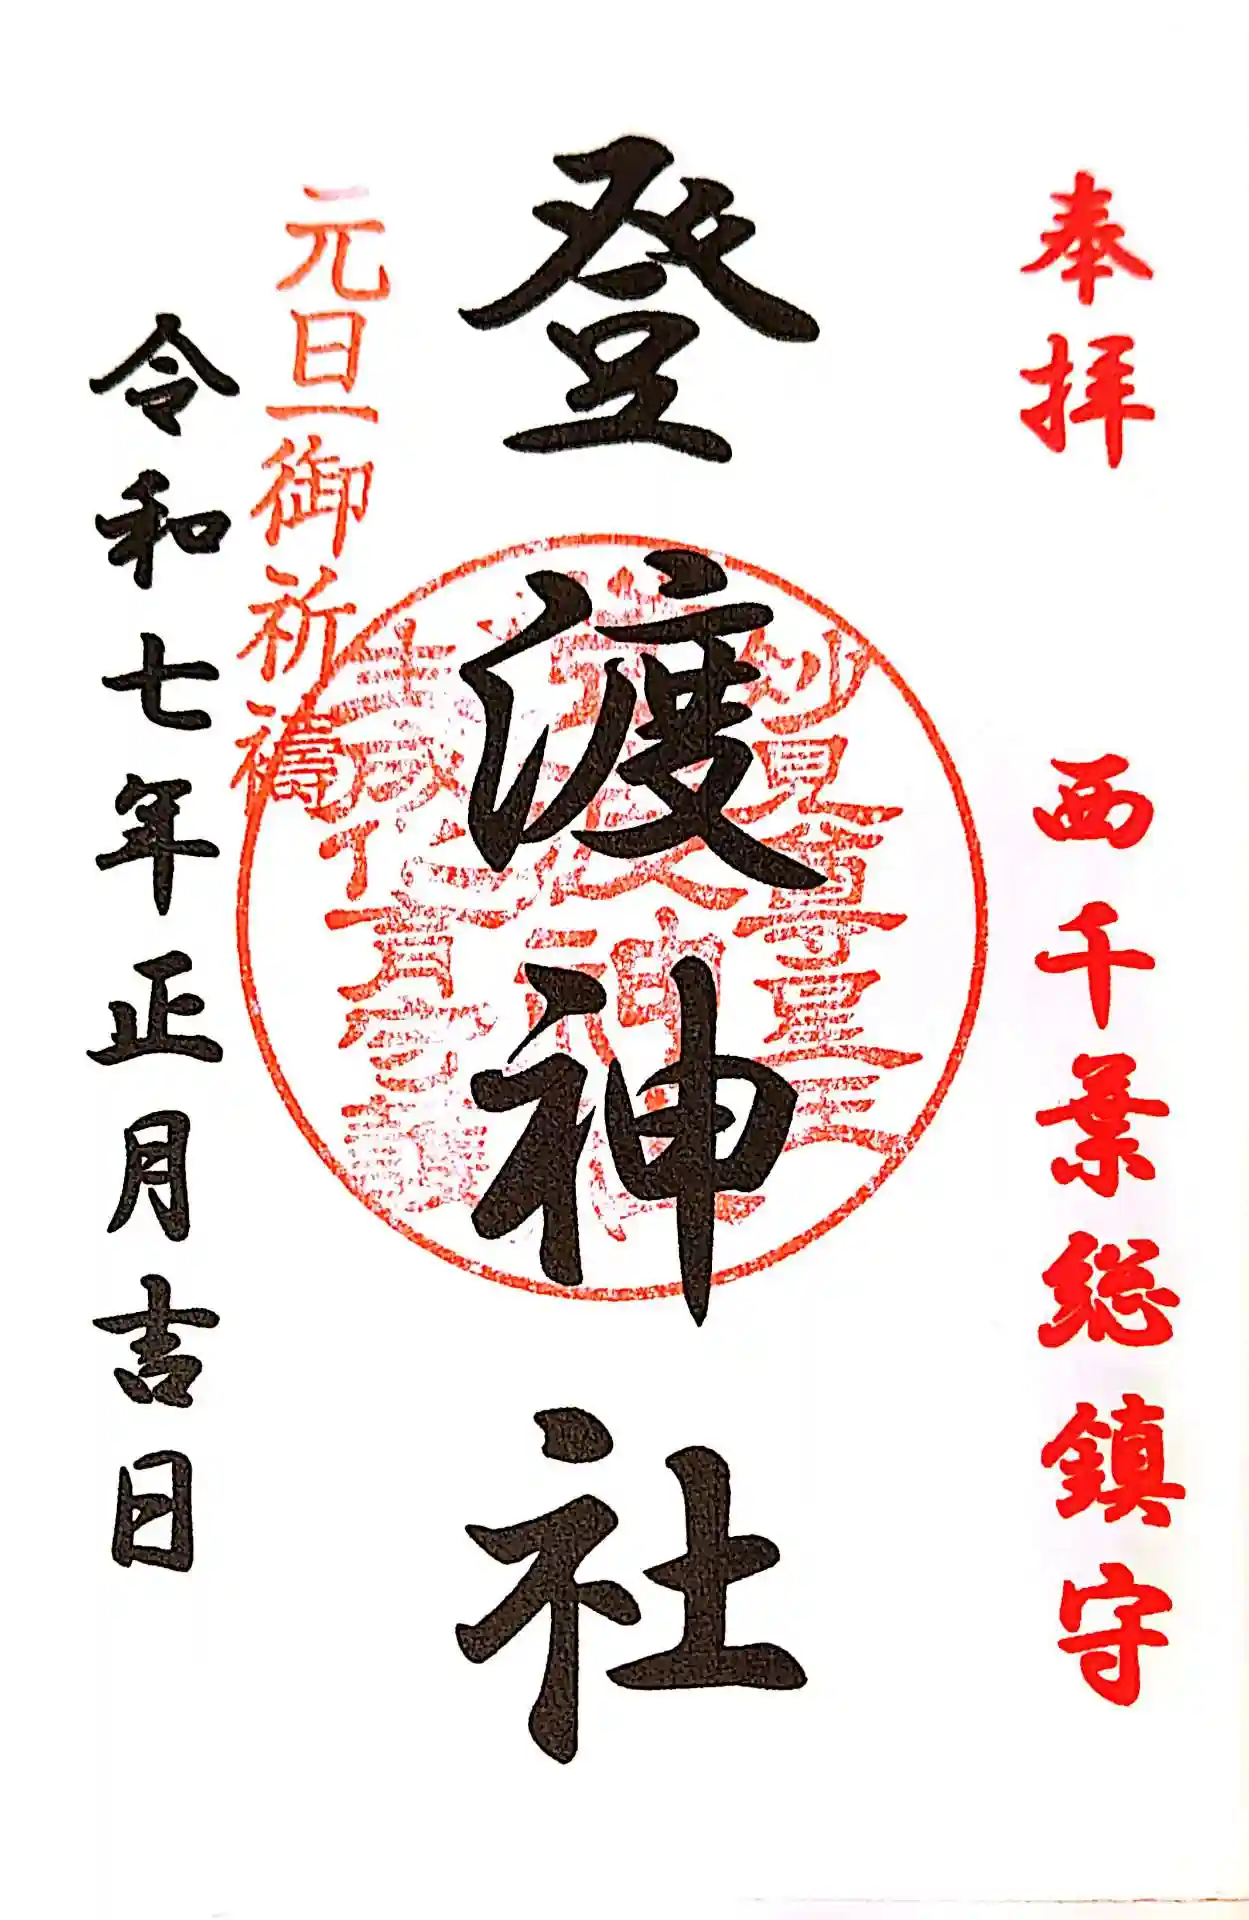 奉拝
西千葉総鎮守
登渡神社
妙見尊星王
元旦御祈祷
令和七年正月吉日